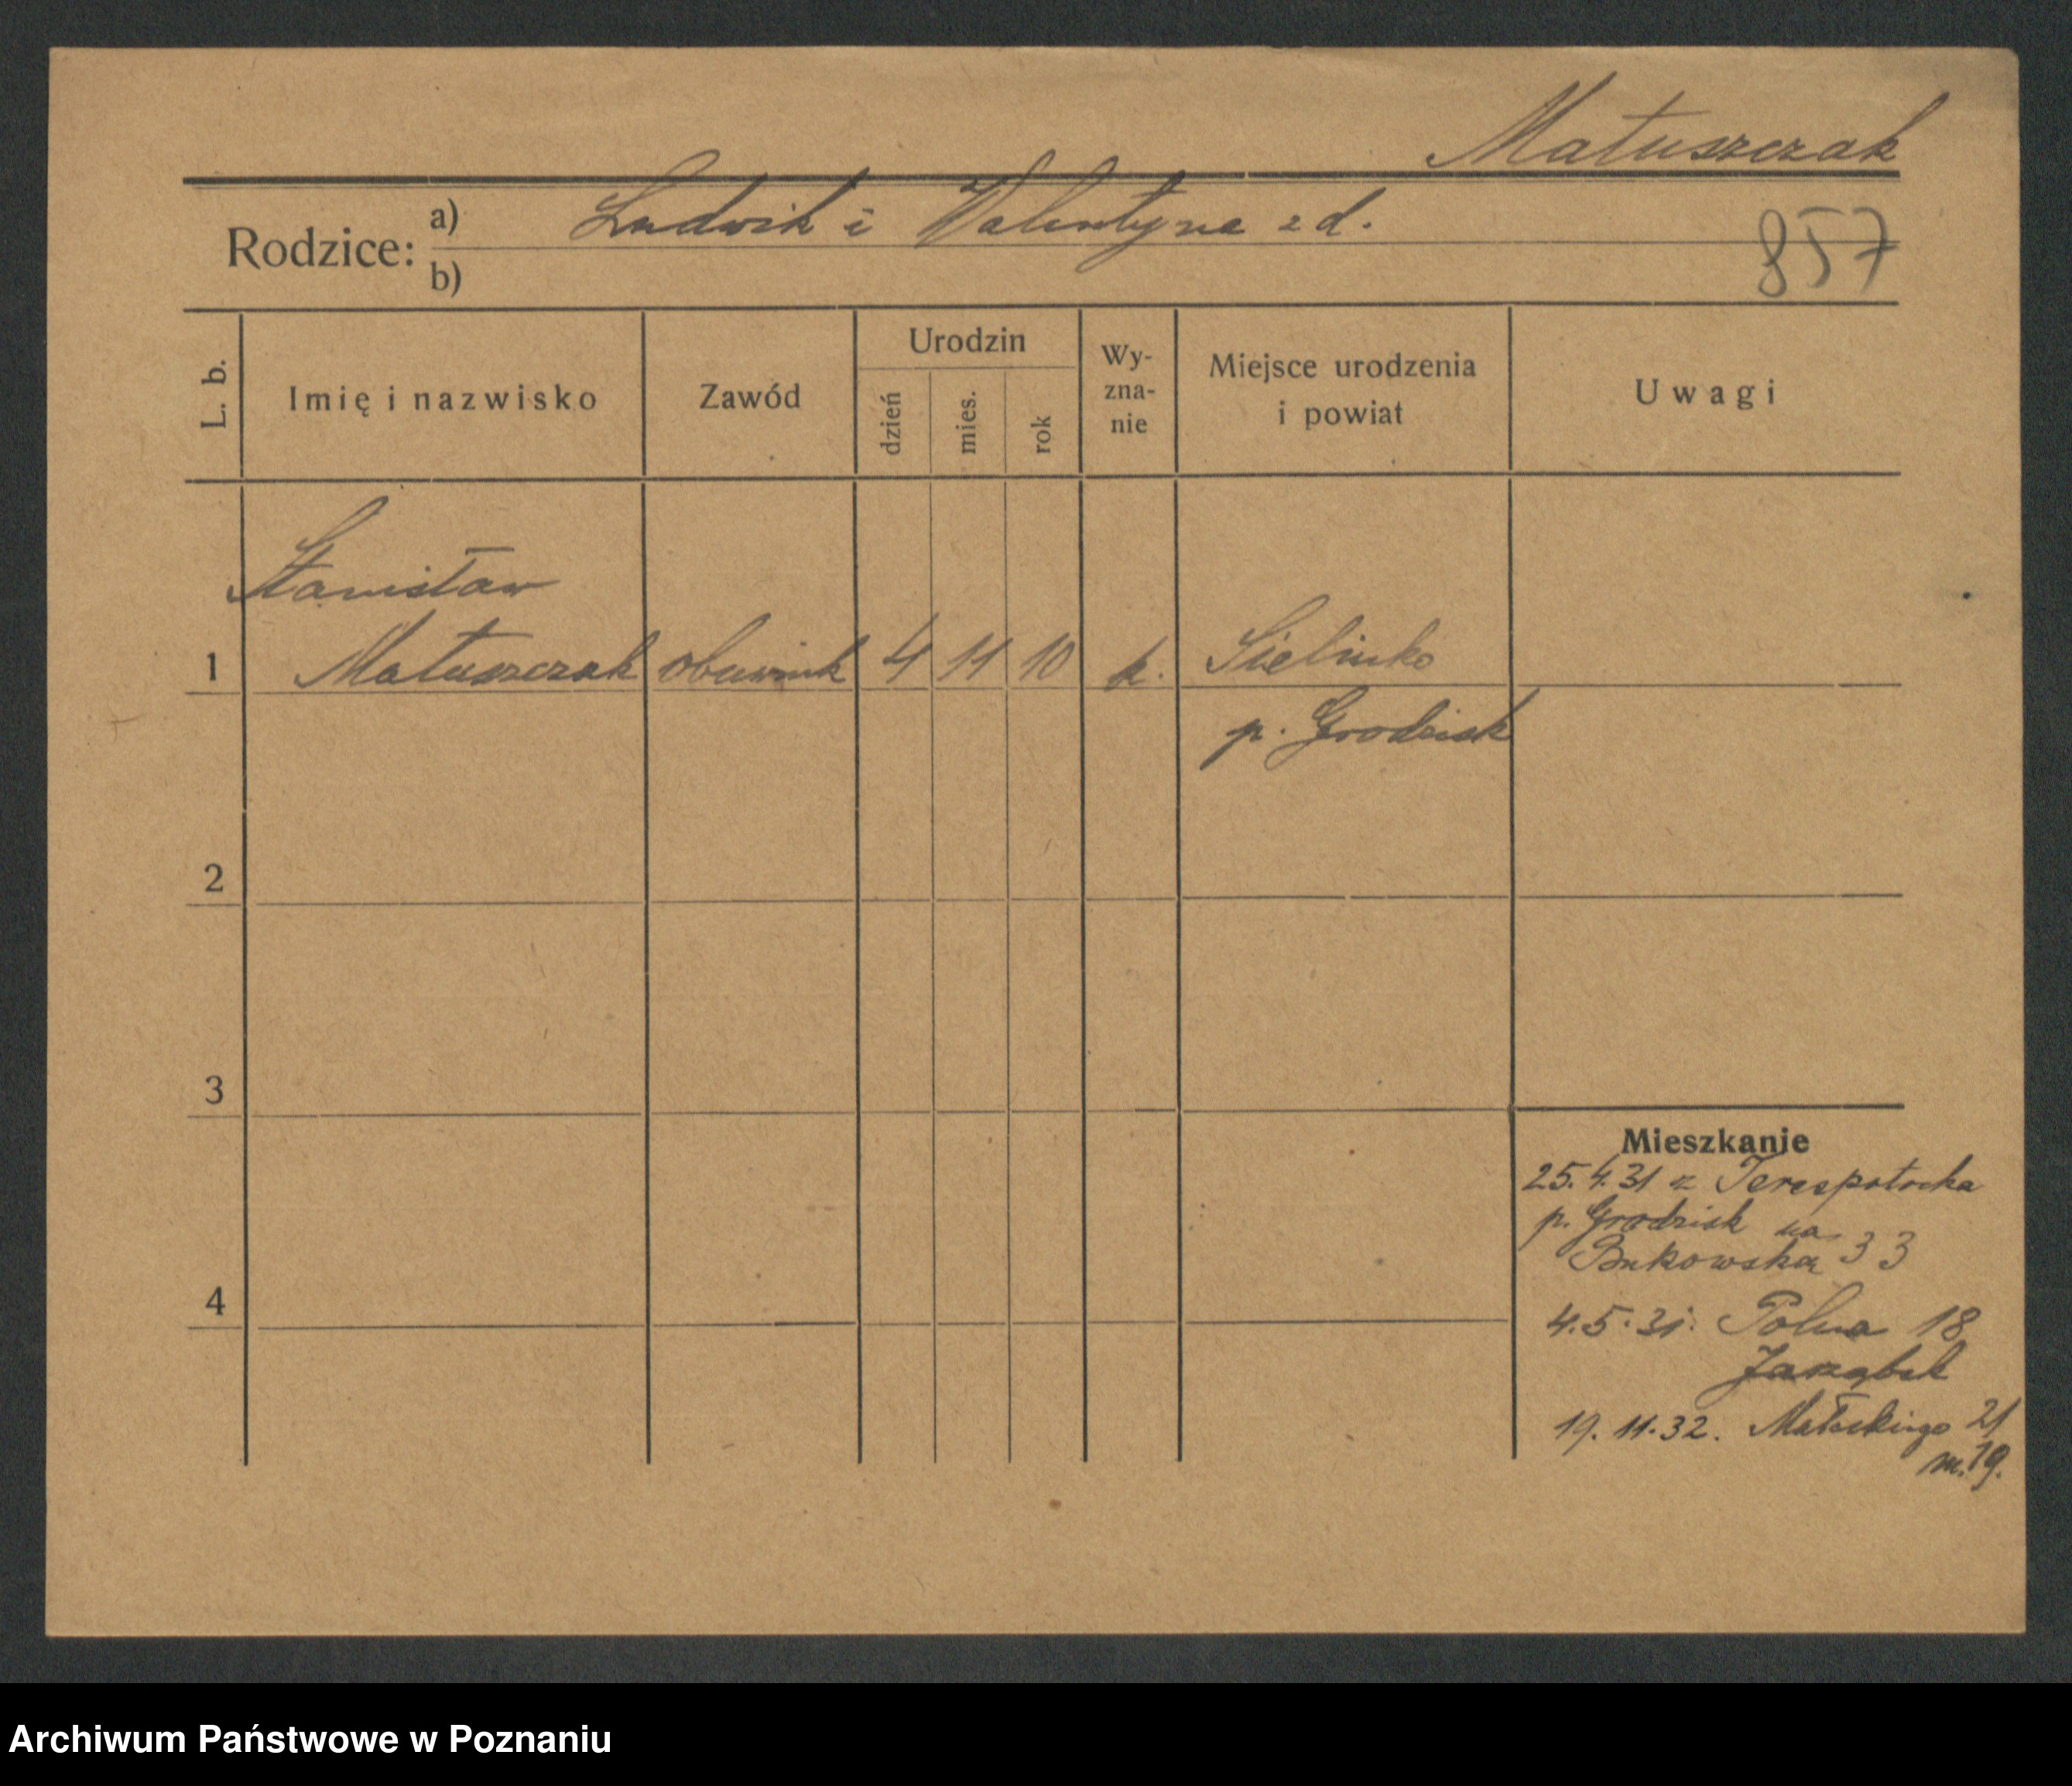 Matuszczak
Rodzice: a) Ludwik i Walentyna z d.
b)
857
L. b.
Imię i nazwisko
Zawód
Urodzin
dzień
mies.
rok
Wy-
zna-
nie
Miejsce urodzenia
i powiat
Uwagi
Stanisław
1 Matuszczak obuwnik 4 11 10 k. Sielinko
p. Grodzisk
2
3
4
Mieszkanie
25.4.31 z Terespotocka
p. Grodzisk na
Bukowska 33
4.5.31. Polna 18
19.11.32. Małeckiego 21
m. 19.
Archiwum Państwowe w Poznaniu